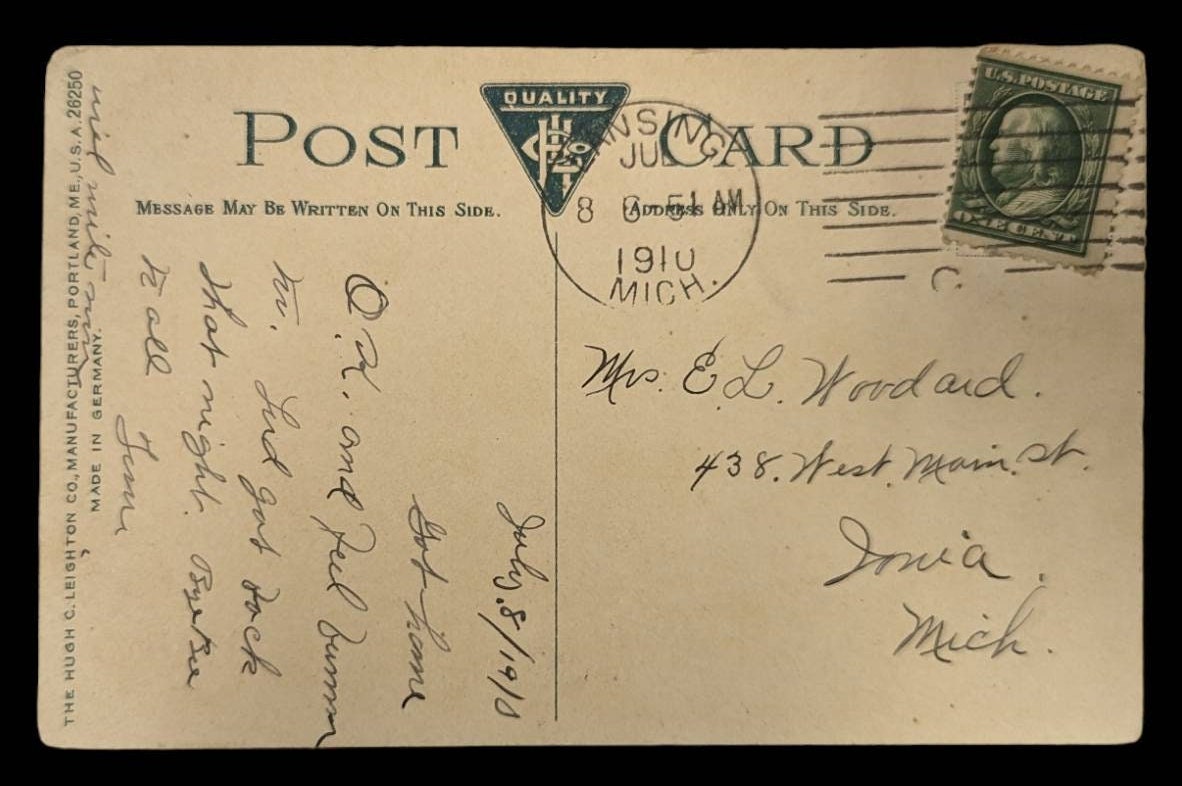 POST CARD
QUALITY
MESSAGE MAY BE WRITTEN ON THIS SIDE.
ADDRESS ONLY ON THIS SIDE.
LANSING
JUL
8
AM
1910
MICH.
U.S. POSTAGE
ONE CENT
Mrs. E. L. Woodard.
438. West. Main. St.
Ionia.
Mich.
July. 8/1910
Got home
O.K. and feel
got back
that night. Bye Bye
to all
THE HUGH C. LEIGHTON CO., MANUFACTURERS, PORTLAND, ME., U.S.A. 26250
MADE IN GERMANY.